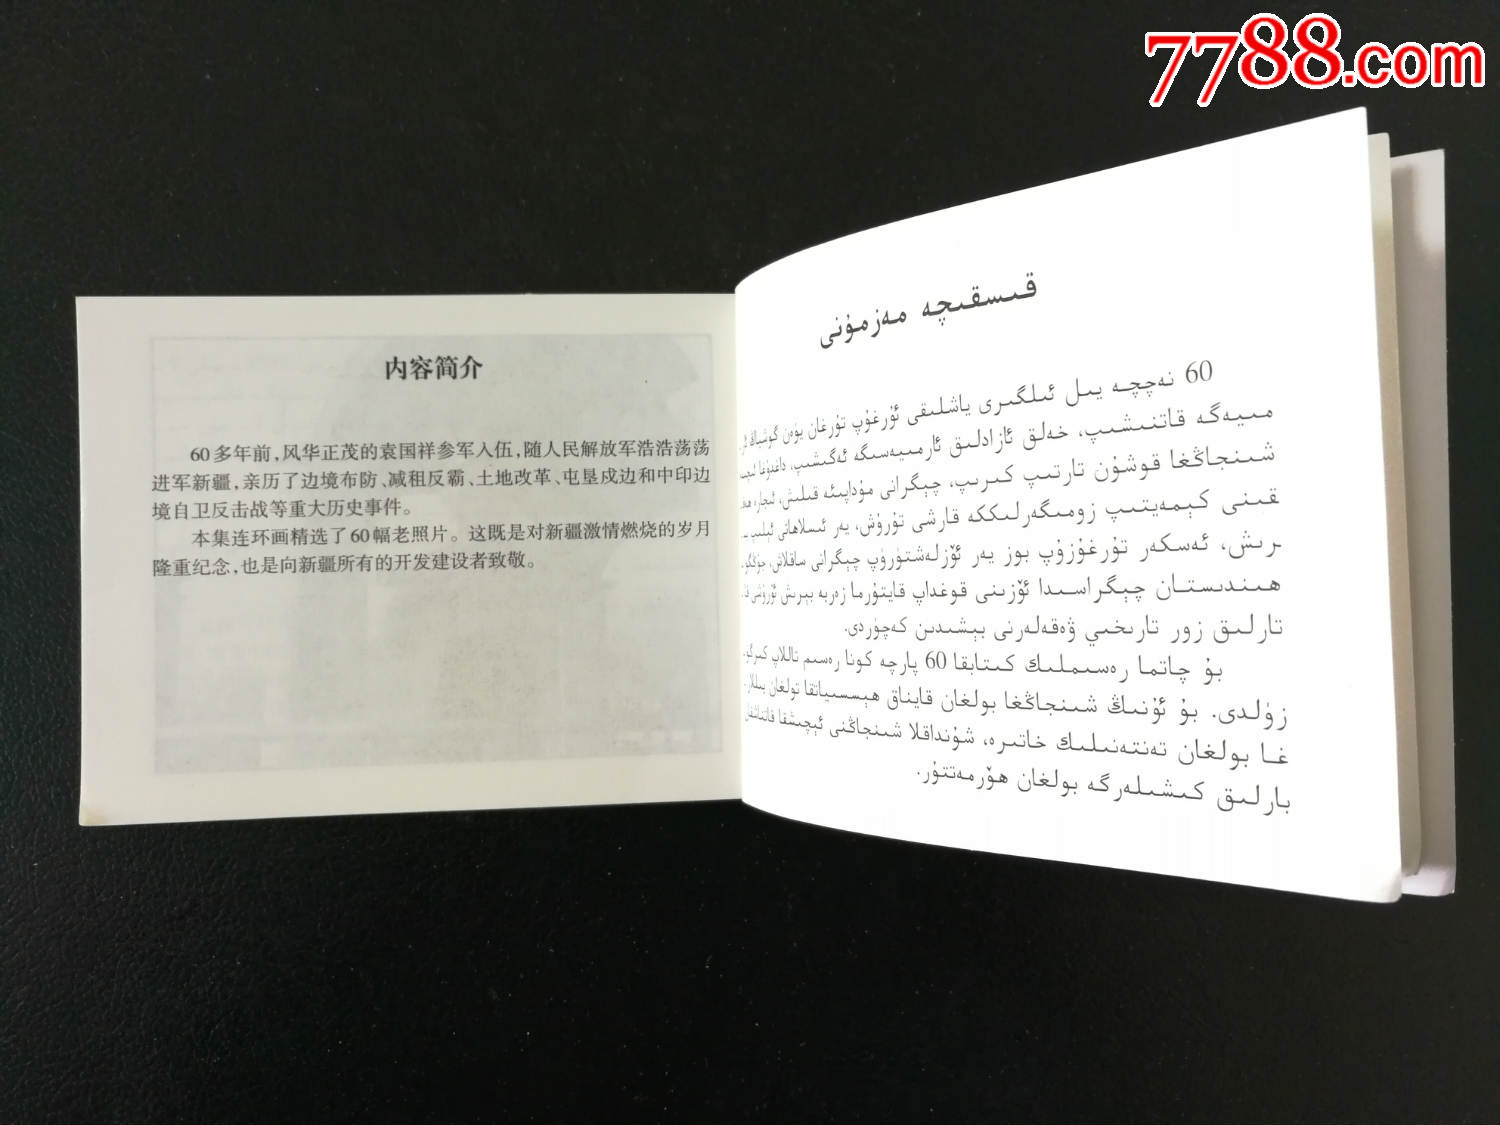 7788.com
内容简介
60多年前,风华正茂的袁国祥参军入伍,随人民解放军浩浩荡荡
进军新疆,亲历了边境布防、减租反霸、土地改革、屯垦戍边和中印边
境自卫反击战等重大历史事件。
本集连环画精选了60幅老照片。这既是对新疆激情燃烧的岁月
隆重纪念,也是向新疆所有的开发建设者致敬。
قىسقىچە مەزمۇنى
60 نەچچە يىل ئىلگىرى ياشلىقى ئۇرغۇپ تۇرغان يۈەن گوشياڭ
مىيەگە قاتنىشىپ، خەلق ئازادلىق ئارمىيەسىگە ئەگىشىپ، داغدۇغا
شىنجاڭغا قوشۇن تارتىپ كىرىپ، چېگرانى مۇداپىئە قىلىش، ئىجارە
قىنى كېمەيتىپ زومىگەرلىككە قارشى تۇرۇش، يەر ئىسلاھاتى ئېلىپ
رىش، ئەسكەر تۇرغۇزۇپ بوز يەر ئۆزلەشتۈرۈپ چېگرانى ساقلاش،
ھىندىستان چېگراسىدا ئۆزىنى قوغداپ قايتۇرما زەربە بېرىش ئۇرۇشى
تارلىق زور تارىخىي ۋەقەلەرنى بېشىدىن كەچۈردى.
بۇ چاتما رەسىملىك كىتابقا 60 پارچە كونا رەسىم تاللاپ
زۈلدى. بۇ ئۇنىڭ شىنجاڭغا بولغان قايناق ھېسسىياتقا تولغان
غا بولغان تەنتەنىلىك خاتىرە، شۇنداقلا شىنجاڭنى ئېچىشقا قاتناشقان
بارلىق كىشىلەرگە بولغان ھۆرمەتتۇر.